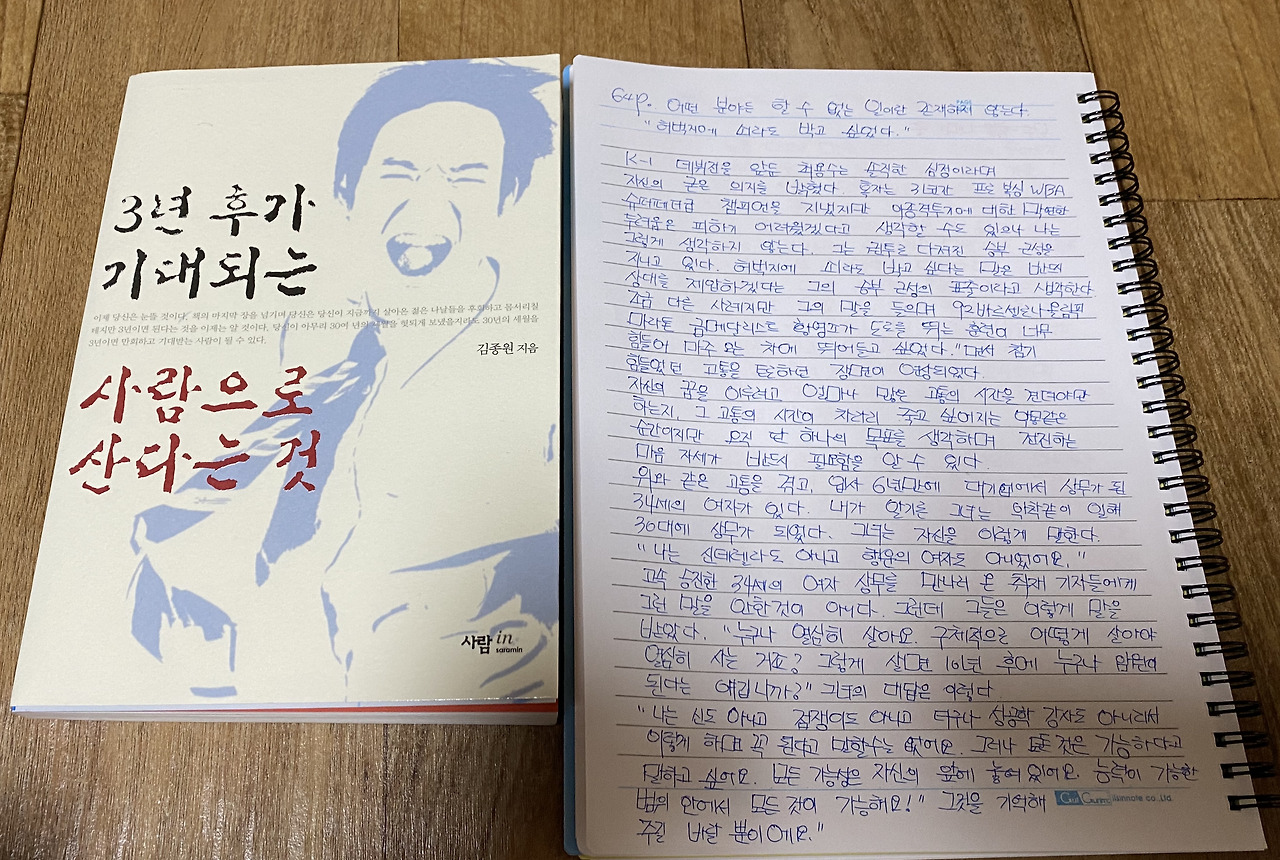 3년 후가
기대되는
이제 당신은 눈뜰 것이다. 책의 마지막 장을 넘기며 당신은 당신이 지금까지 살아온 젊은 나날들을 후회하고 몸서리칠
테지만 3년이면 된다는 것을 이제는 알 것이다. 당신이 아무리 30여 년의 세월을 헛되게 보냈을지라도 30년의 세월을
3년이면 만회하고 기대받는 사람이 될 수 있다.
김종원 지음
사람으로
산다는 것
사람 in
saramin
64p. 어떤 분야든 할 수 없는 일이란 존재하지 않는다.
"허벅지에 쇠라도 박고 싶었다."
K-1 데뷔전을 앞둔 최용수는 솔직한 심정이라며
자신의 굳은 의지를 밝혔다. 혹자는 31코간 프로 복싱 WBA
슈퍼페더급 챔피언을 지냈지만 이종격투기에 대한 막연한
두려움은 피하기 어려웠겠다고 생각할 수도 있으나 나는
그렇게 생각하지 않는다. 그는 권투로 다져진 승부 근성을
지니고 있다. 허벅지에 쇠라도 박고 싶다는 말은 반드시
상대를 제압하겠다는 그의 승부 근성의 표출이라고 생각한다.
조금 다른 사례지만 그의 말을 들으며 92바르셀로나올림픽
마라톤 금메달리스트 황영조가 도로를 뛰는 훈련이 너무
힘들어 마주 오는 차에 뛰어들고 싶었다."면서 참기
힘들었던 고통을 토로하던 장면이 연상되었다.
자신의 꿈을 이루려고 얼마나 많은 고통의 시간을 견뎌야만
하는지, 그 고통의 시간이 차라리 죽고 싶어지는 악몽같은
순간이지만 오직 단 하나의 목표를 생각하며 전진하는
마음 자세가 반드시 필요함을 알 수 있다.
위와 같은 고통을 겪고, 입사 6년만에 대기업에서 상무가 된
34세의 여자가 있다. 내가 알기로 그녀는 악착같이 일해
30대에 상무가 되었다. 그녀는 자신을 이렇게 말한다.
"나는 신데렐라도 아니고 행운의 여자도 아니었어요."
고속 승진한 34세의 여자 상무를 만나러 온 취재 기자들에게
그런 말을 안한것이 아니다. 그런데 그들은 이렇게 말을
받았다. "누구나 열심히 살아요. 구체적으로 어떻게 살아야
열심히 사는 거죠? 그렇게 살면 10년 후에 누구나 임원이
된다는 얘깁니까?" 그녀의 대답은 이렇다.
"나는 신도 아니고 점쟁이도 아니고 더구나 성공학 강사도 아니라서
이렇게 하면 꼭 된다고 말할수는 없어요. 그러나 모든 것은 가능하다고
말하고 싶어요. 모든 가능성은 자신의 앞에 놓여 있어요. 능력이 가능한
범위 안에서 모든 것이 가능해요!" 그것을 기억해
주길 바랄 뿐이에요."
skinnote co.,Ltd.